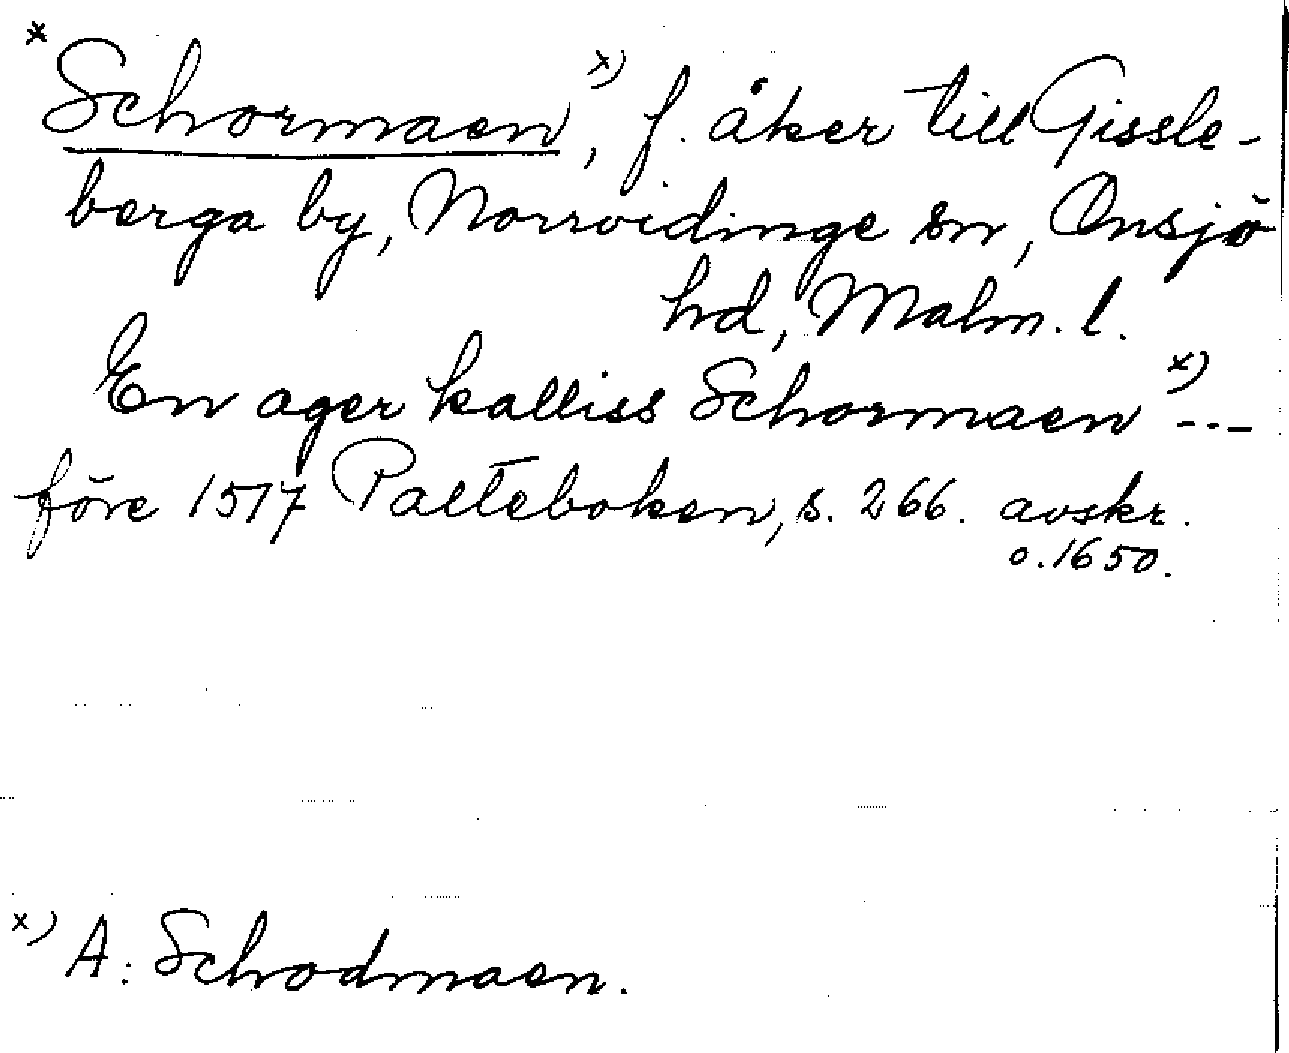 * Schormaen, x) f. åker till Gissle-
berga by, Norrvidinge sn, Onsjö
hd, Malm. l.
En ager kalliss Schormaen x) ---
före 1517 Palteboken, s. 266. avskr.
o. 1650.
x) A: Schodmaen.